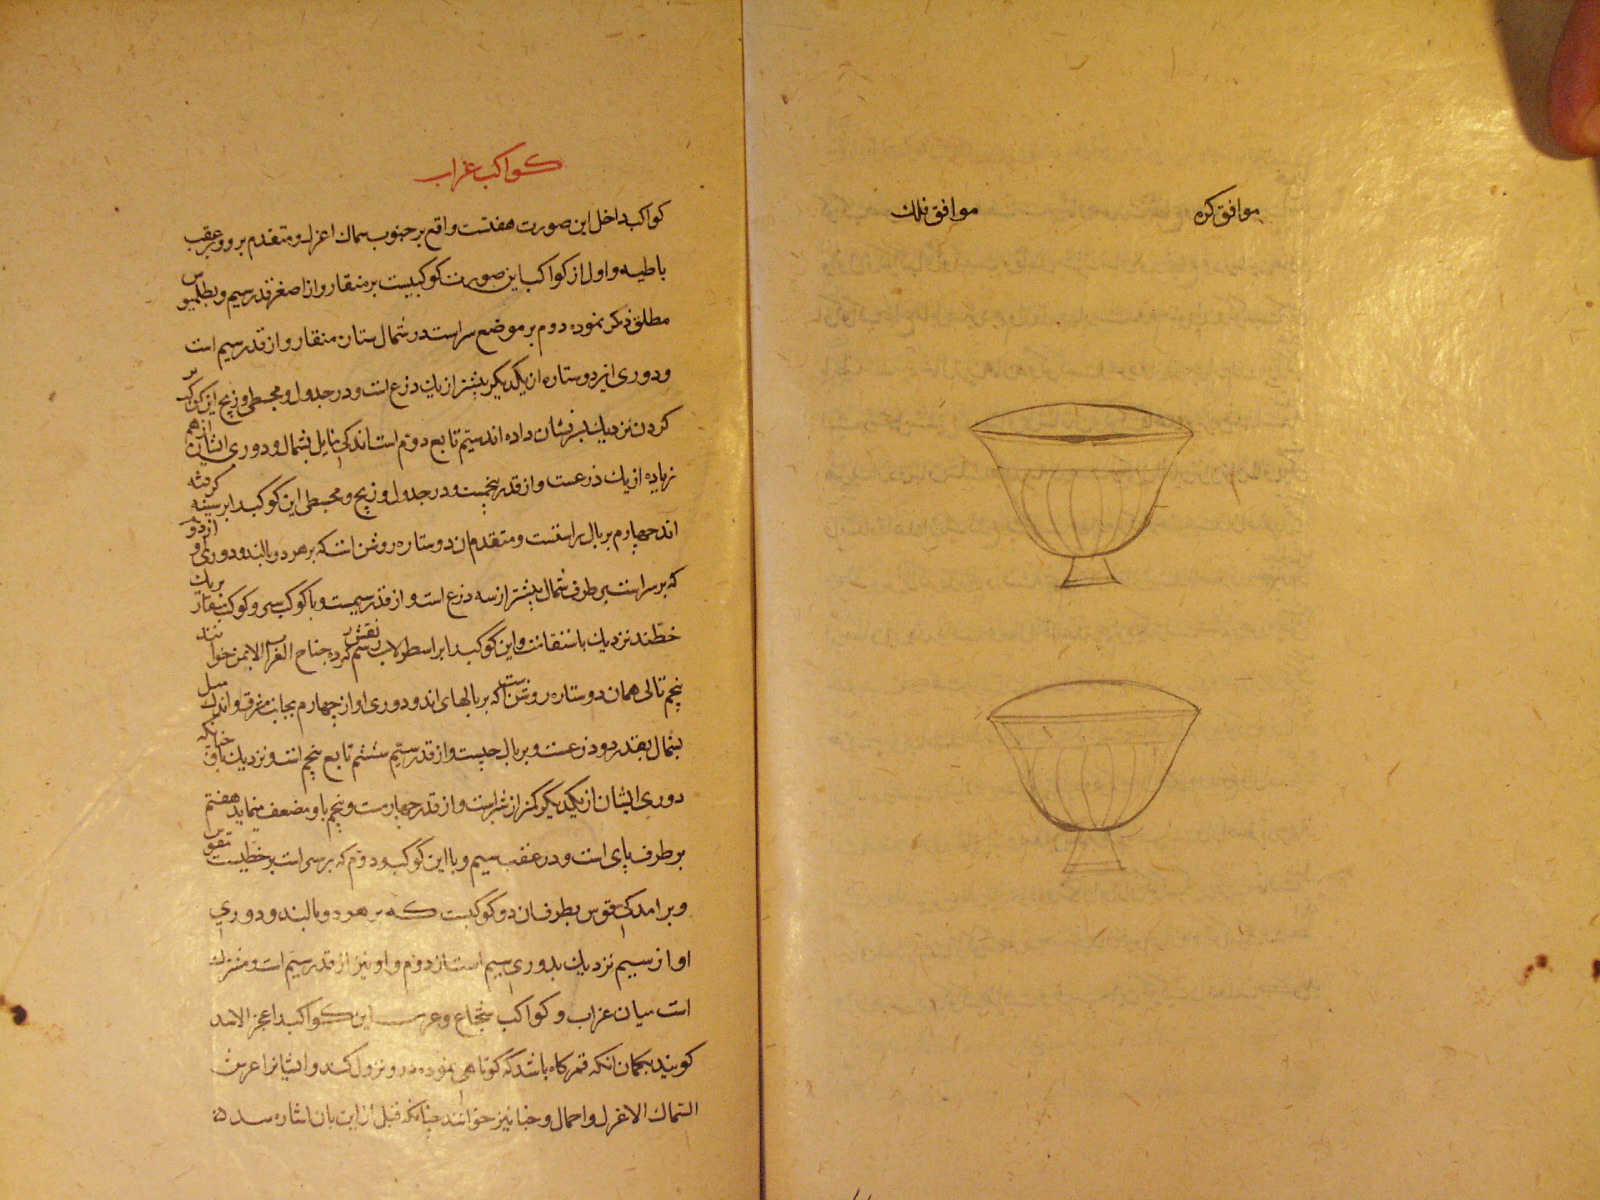 موافق کره
موافق فلک
کواکب غراب
کواکب داخل این صورت هفتست واقع بر جنوب سماک اعزل و متقدم برو و بر عقب
باطیه و اول از کواکب این صورت کوکبیست بر منقار و از اصغر قدر سیم و بطلمیوس
مطلق ذکر نموده دوم بر موضع سراست در شمال ستان منقار و از قدر سیم است
و دوری این دو ستاره از یکدیکر بیشتر از یک ذرع است و در جدول و مجسطی و زیج این کوکب
کردن نزدیک بسر نشان داده اند سیّم تابع دوّم است اندکی مایل بشمال و دوری ایشان از هم
زیاده از یک ذرعست و از قدر پنجمست و در جدول و زیج و مجسطی این کوکب را بر سینه کرفته
اند چهارم بر بال راستست و متقدم ان دو ستاره روشن است که بر هر دو بالند و دوری او از دوّ
که بر سر است بر طرف شمال بیشتر از سه ذرع است و از قدر سیمست و با کوکب سر و کوکب منقار بر یک
خطّند نزدیک باستقامت و این کوکب را بر اسطرلاب نقش رسم کرده جناح الغراب الایمن خوانند
پنجم تالی همان دو ستاره روشن است که بر بالهای اند و دوری او از چهارم بجانب مشرق و اندک میل
بشمال بقدر دو ذرعست و بر بال چپست و از قدر سیّم ششم تابع پنجم است و نزدیک باو چنانکه
دوری ایشان از یکدیکر کمتر از شبر است و از قدر چهارمست و پنجم باو مضعف مینماید هفتم
بر طرف پای است و در عقب سیم و با این کوکب و دوّم که بر سر است بر خطیست تقوس
و برامدکی قوس بطرف ان دو کوکبست که بر هر دو بالند و دوری
او از سیم نزدیک بدوری سیم است از دوّم و او نیز از قدر سیّم است و مشترک
است میان غراب و کواکب شجاع و عرب این کواکب را عجز الاسد
کویند بکمان انکه قمر کاه باشد که کوتاهی نموده در و نزول کند و ایشانرا عرش
السّماک الاعزل و احمال و خبا نیز خوانند چنانکه قبل از این بان اشاره شد